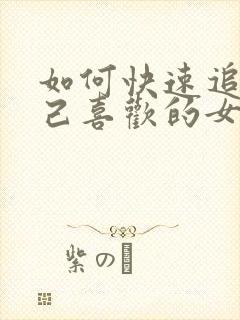 如何快速追
己喜歡的女
紫の